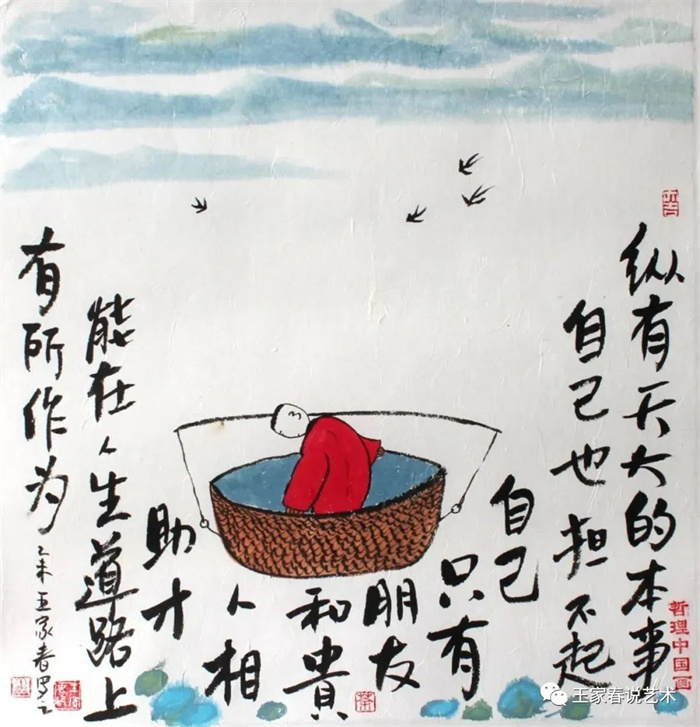 纵有天大的本事
自己也担不起
自己
只有
朋友
和貴
人相
助才
能在人生道路上
有所作为
乙未王家春写之
哲理中国画
王家春说艺术